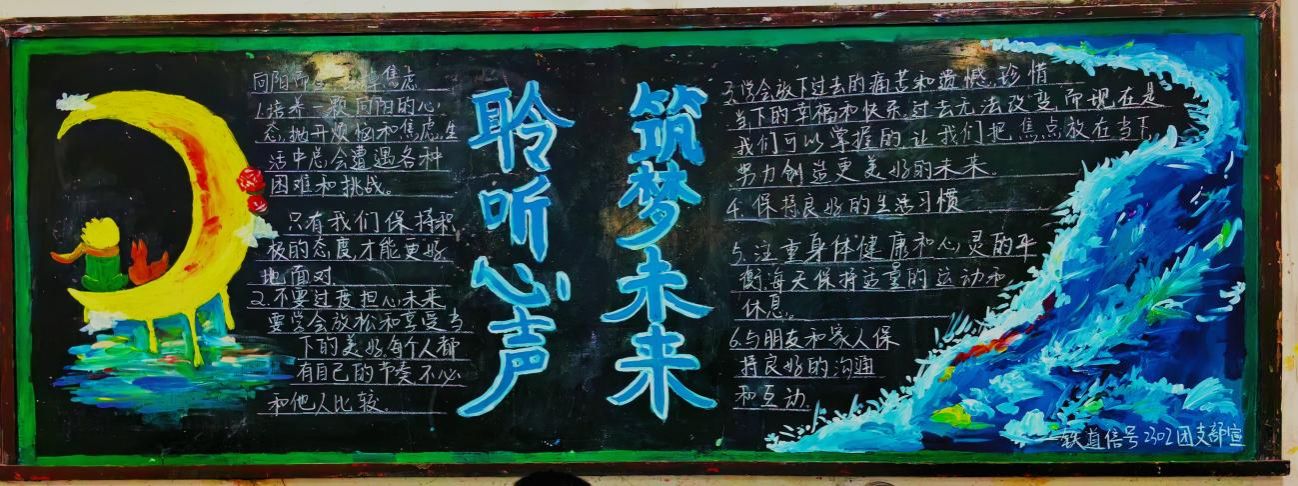 向阳而 焦虑
1.培养一颗向阳的心
态,抛开烦恼和焦虑,生
活中总会遭遇各种
困难和挑战。
只有我们保持积
极的态度,才能更好
地面对.
2.不要过度担心未来
要学会放松和享受当
下的美好,每个人都
有自己的节奏,不必
和他人比较.
聆听心声
筑梦未来
3.学会放下过去的痛苦和遗憾,珍惜
当下的幸福和快乐,过去无法改变,而现在是
我们可以掌握的,让我们把焦点放在当下,
努力创造更美好的未来.
4.保持良好的生活习惯
5.注重身体健康和心灵的平
衡,每天保持适量的运动和
休息。
6.与朋友和家人保
持良好的沟通
和互动.
铁道信号2302团支部宣